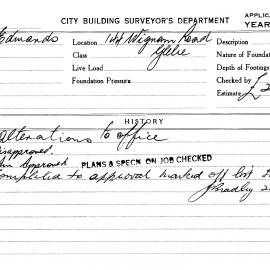 CITY BUILDING SURVEYOR'S DEPARTMENT
APPLIC
YEAR
Edmands Location 144 Wigram Road Description
Class Glebe Nature of Foundat
Live Load Depth of Footings
Foundation Pressure Checked by
Estimate £
HISTORY
alterations to office
isapproved.
Approved PLANS & SPECN. ON JOB CHECKED
completed to approval marked off list
Bradley